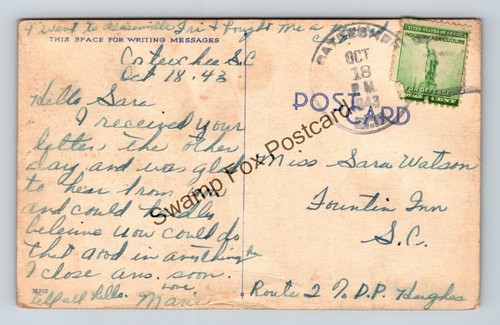 I went to Fri & bought me a
THIS SPACE FOR WRITING MESSAGES
S.C
Oct 18. 43
Hello Sara
I received your
letter, the other
day and was glad
to hear from you
and could hardly
beleive you could do
that good in anything
I close ans. soon.
Love
Tell all hello. Marie
OCT
18
P.M.
1943
UNITED STATES OF AMERICA
INDUSTRY AGRICULTURE
FOR DEFENSE
CENT
POST CARD
Miss Sara Watson
Fountin Inn
S.C.
Route 2 % D.P. Hughes
Swamp Fox Postcard